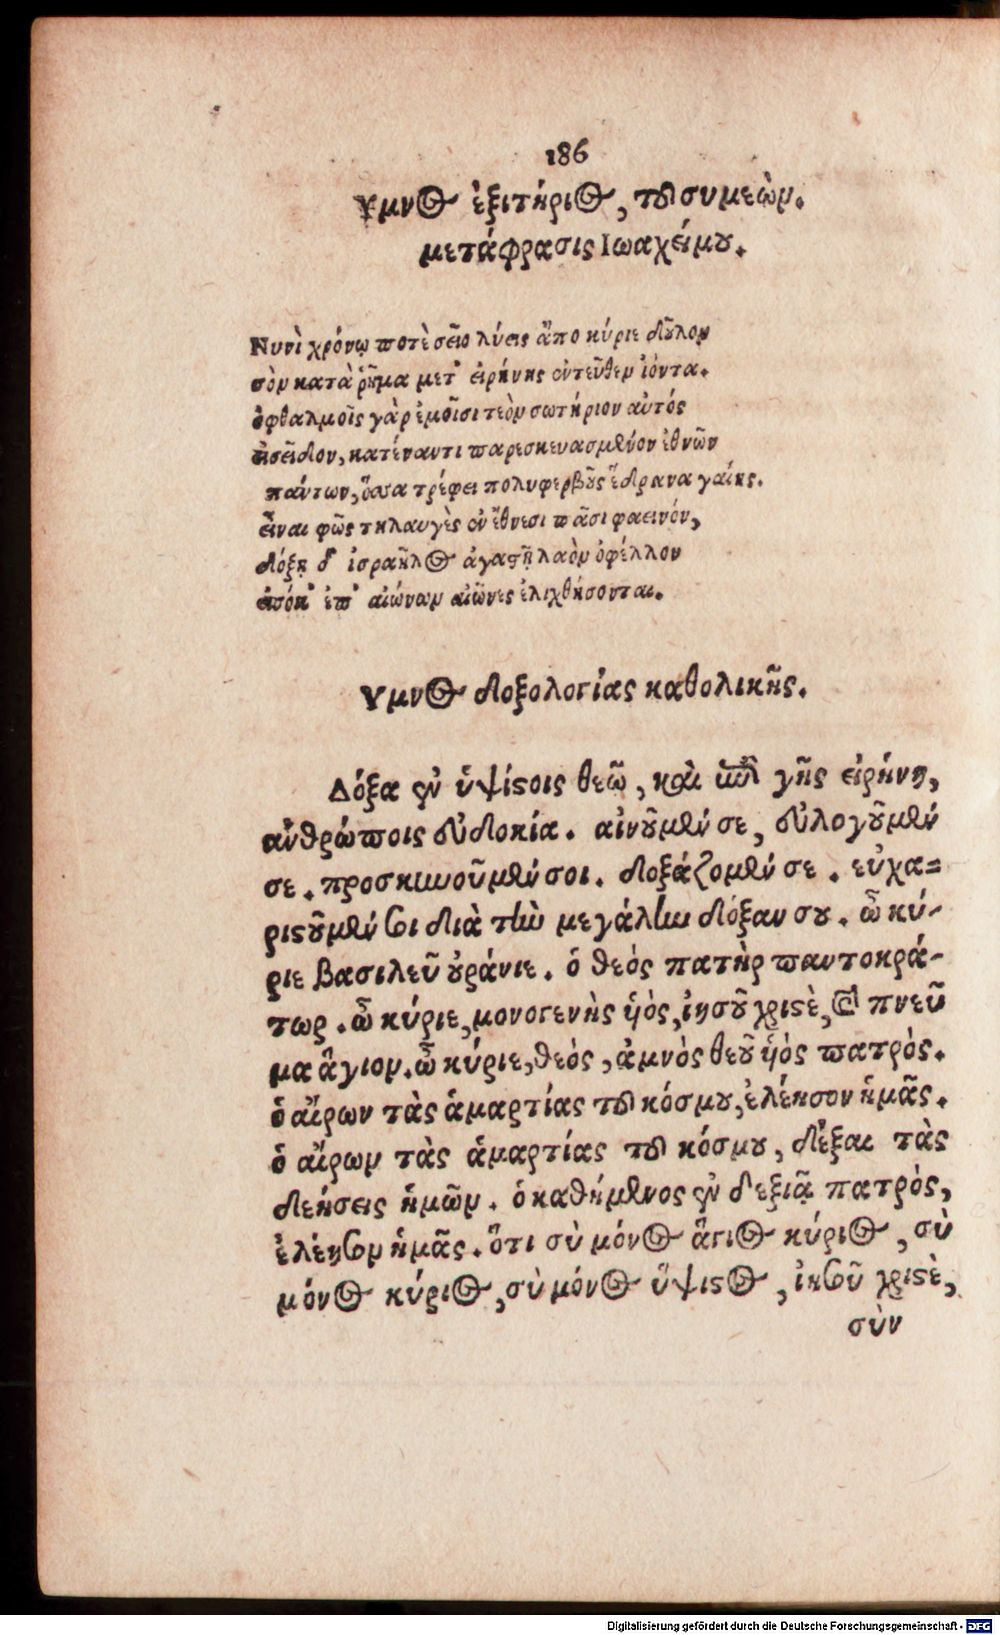 186
Υμνος ἐξιτήριος, τοῦ συμεὼν.
μετάφρασις Ιωαχείμου.
Νυνὶ χρόνῳ ποτὲ σεῖο λύεις ἄπο κύριε δοῦλον
σὸν κατὰ ῥῆμα μετ' εἰρήνης ἐντεῦθεν ἰόντα.
ὀφθαλμοῖς γὰρ ἐμοῖσι τεὸν σωτήριον αὐτός
εἰσεῖδον, κατέναντι παρεσκευασμένον ἐθνῶν
πάντων, ὅσσα τρέφει πολυφερβοῦς ἕδρανα γαίης.
εἶναι φῶς τηλαυγὲς ἐν ἔθνεσι πᾶσι φαεινόν,
δόξῃ δ' ἰσραῆλος ἀγαστῇ λαὸν ὀφέλλον
εἰσόκ' ἐπ' αἰώνων αἰῶνες ἑλιχθήσονται.
Υμνος δοξολογίας καθολικῆς.
Δόξα ἐν ὑψίστοις θεῷ, καὶ ἐπὶ γῆς εἰρήνη,
ἀνθρώποις εὐδοκία. αἰνοῦμέν σε, εὐλογοῦμέν
σε. προσκυνοῦμέν σοι. δοξάζομέν σε. εὐχα=
ριστοῦμέν σοι διὰ τὴν μεγάλην δόξαν σου. ὦ κύ-
ριε βασιλεῦ οὐράνιε. ὁ θεός πατὴρ παντοκρά-
τωρ. ὦ κύριε, μονογενὴς ὑὸς, ἰησοῦ χριστὲ, καὶ πνεῦ
μα ἅγιον. ὦ κύριε, θεός, ἀμνὸς θεοῦ ὑὸς πατρὸς.
ὁ αἴρων τὰς ἁμαρτίας τοῦ κόσμου, ἐλέησον ἡμᾶς.
ὁ αἴρων τὰς ἁμαρτίας τοῦ κόσμου, δέξαι τὰς
δεήσεις ἡμῶν. ὁ καθήμενος ἐν δεξιᾷ πατρὸς,
ἐλέησον ἡμᾶς. ὅτι σὺ μόνος ἅγιος κύριος, σὺ
μόνος κύριος, σὺ μόνος ὕψιστος, ἰησοῦ χριστὲ,
σὺν
Digitalisierung gefördert durch die Deutsche Forschungsgemeinschaft - DFG